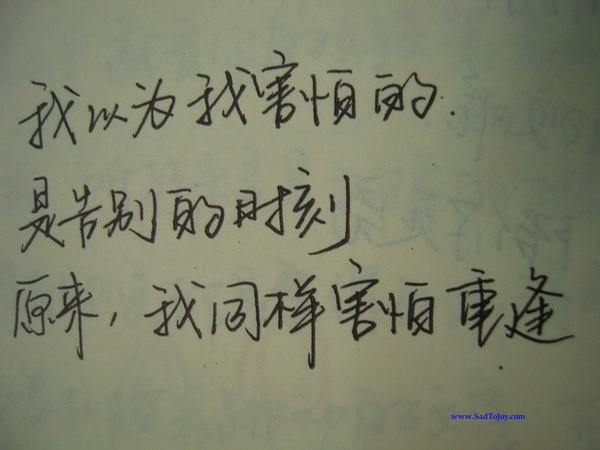 我以为我害怕的.
是告别的时刻
原来，我同样害怕重逢.
www.SadToJoy.com